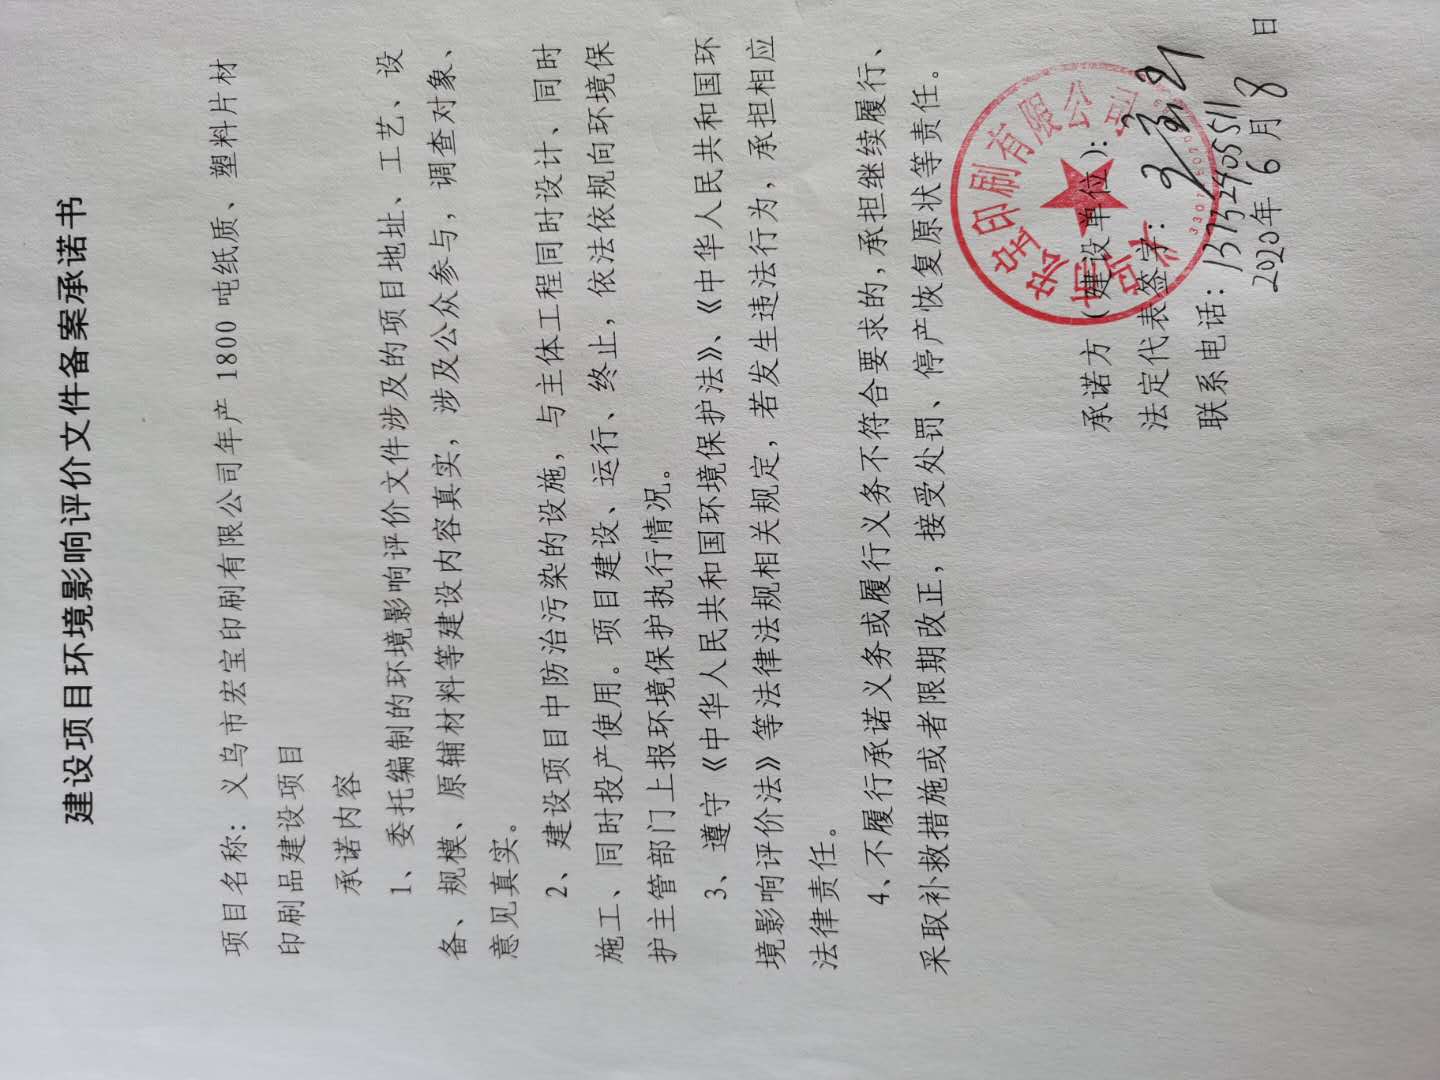 建设项目环境影响评价文件备案承诺书
项目名称：义乌市宏宝印刷有限公司年产 1800 吨纸质、塑料片材
印刷品建设项目
承诺内容
1、委托编制的环境影响评价文件涉及的项目地址、工艺、设
备、规模、原辅材料等建设内容真实，涉及公众参与，调查对象、
意见真实。
2、建设项目中防治污染的设施，与主体工程同时设计、同时
施工、同时投产使用。项目建设、运行、终止，依法依规向环境保
护主管部门上报环境保护执行情况。
3、遵守《中华人民共和国环境保护法》、《中华人民共和国环
境影响评价法》等法律法规相关规定，若发生违法行为，承担相应
法律责任。
4、不履行承诺义务或履行义务不符合要求的，承担继续履行、
采取补救措施或者限期改正，接受处罚、停产恢复原状等责任。
义乌市宏宝印刷有限公司
承诺方（建设单位）：
法定代表签字：
联系电话：13732405511
2020年6月8日